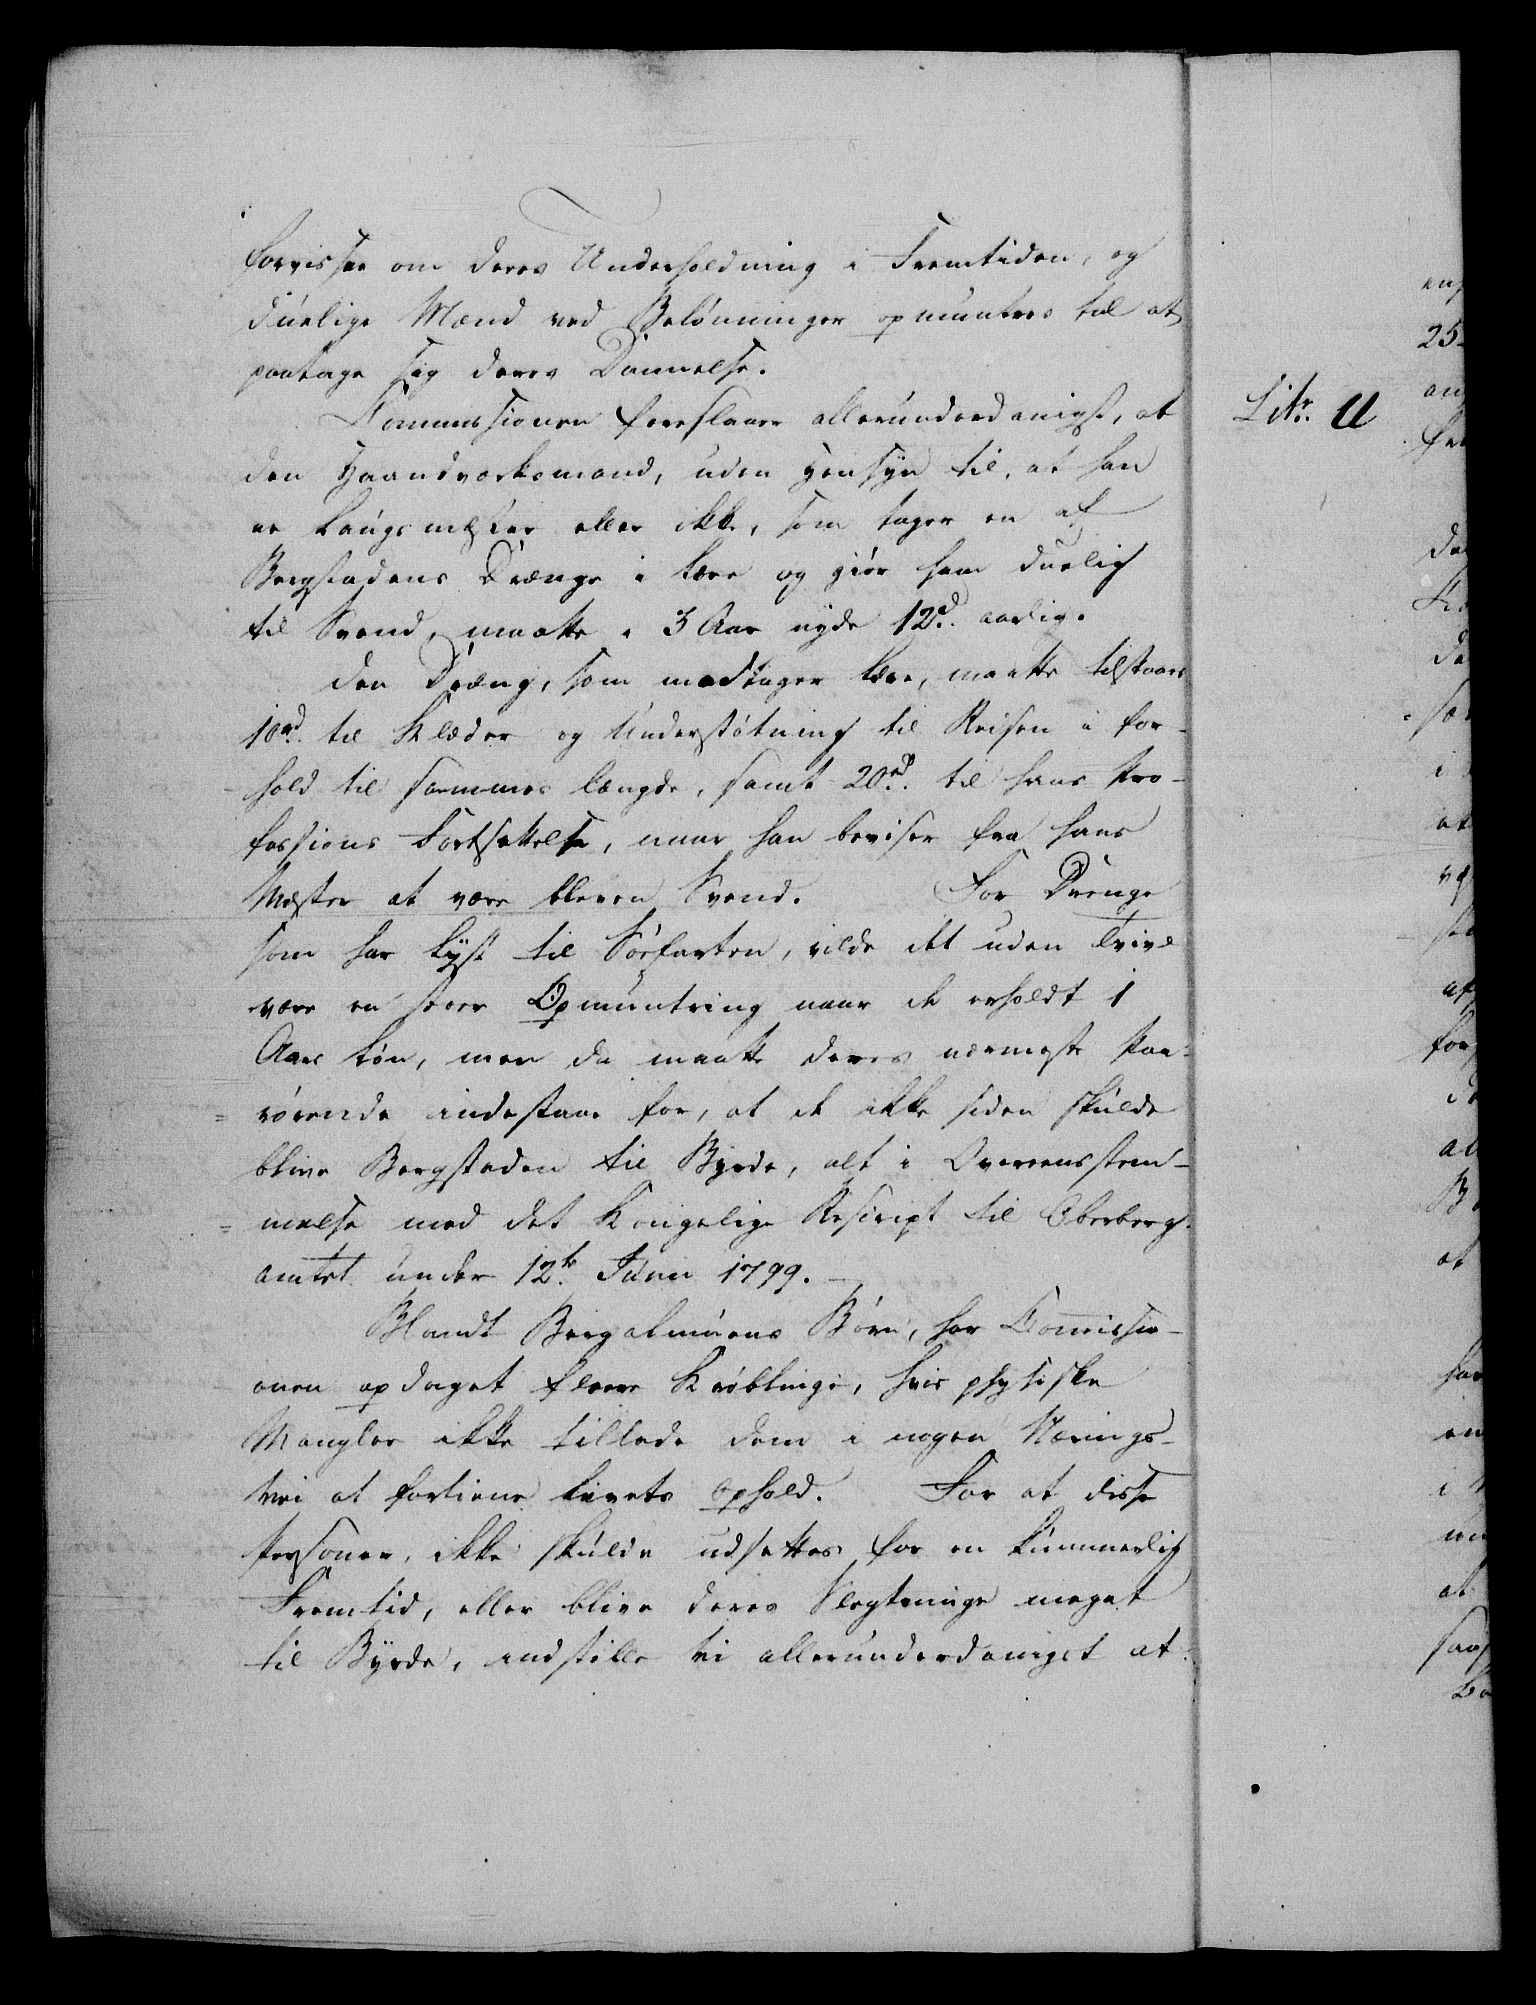 forvisses om deres Underholdning i Fremtiden, og
duelige Mænd ved Belønninger opmuntres til at
paatage sig deres Dannelse.
Commissionen foreslaaer allerunderdanigst, at
den Haandverksmand, uden Hensyn til, at han
er Laugsmester eller ikke, som tager en af
Bergstadens Drænge i Lære og giør ham duelig
til Svend, maatte i 3 Aar nyde 12rd. aarlig.
Den Dræng, som modtager Lære, maatte tilstaaes
10rd. til Klæder og Understøtning til Reisen i for-
hold til sammes længde, samt 20rd. til hans Pro-
fessions Fortsettelse, naar han beviser fra hans
Mester at være bleven Svend. For Drenge
som har Lyst til Søefarten, vilde det uden Tvivl
være en stoer Opmuntring naar de erholdt 1
Aars Løn, men da maatte deres nærmeste Paa-
rørende indestaae for, at de ikke siden skulde
blive Bergstaden til Byrde, alt i Overeensstem-
melse med det Kongelige Rescript til Oberberg-
amtet under 12te Junii 1799.
Blandt Bergalmuens Børn, har Commissi-
onen opdaget fleere Krøblinge, hvis physiske
Mangler ikke tillade dem i nogen Nærings-
vei at fortiene Livets ophold. For at disse
Personer, ikke skulde udsættes for en kummerlig
Fremtid, eller blive deres Slegtninge meget
til Byrde, indstille vi allerunderdanigst at
Litr. U
25